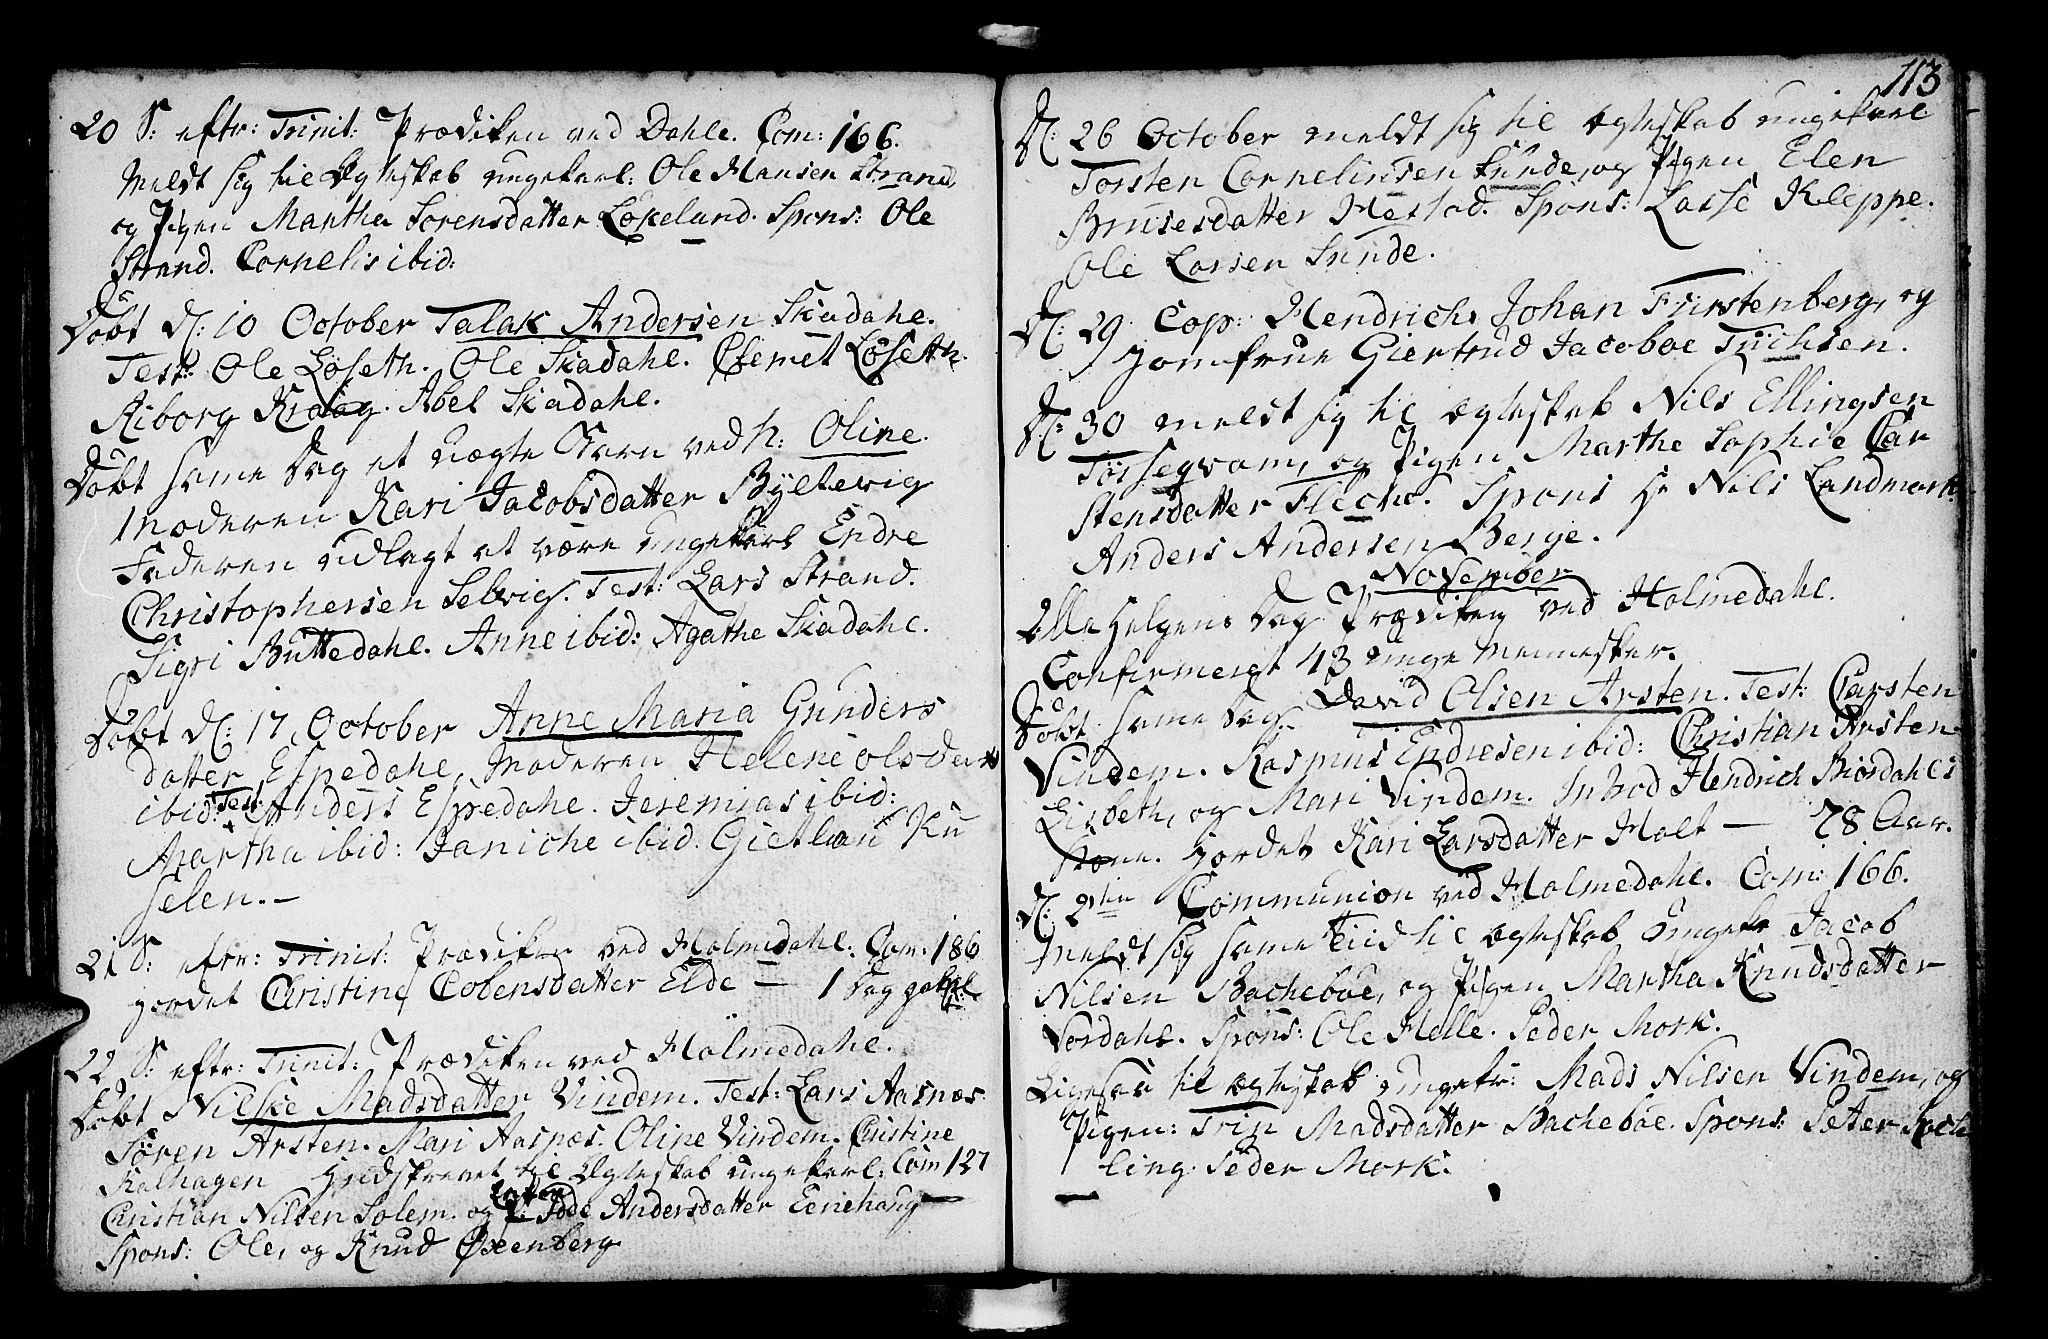 20 S: efter: Trinit: Prædiken ved Dahle. Com: 166.
Meldt sig til Ægteskab ungekarl: Ole Hansen Strand,
og Pigen Martha Sørensdatter Løkeland. Spons: Ole
Strand. Cornelis ibid:
Døbt d: 10 October Talak Andersen Skadahl.
Test: Ole Løseth. Ole Skadahl. Clemet Løseth.
Riborg Kraag. Abel Skadahl.
Døbt same Dag et uægte Barn ved N: Oline.
Moderen Kari Jacobsdatter Byltevig
Faderen udlagt at være ungekarl Endre
Christophersen Selvig. Test: Lars Strand.
Sigri Buttedahl. Anne ibid: Agathe Skadahl.
Døbt d: 17 October Anne Maria Gunders
datter Espedahl, Moderen Helene olsdatt
ibid: Test: Anders Espedahl. Jeremias ibid:
Martha ibid: Janiche ibid. Gietlau Ku
selen.-
21 S: eftr: Trinit: Prædiken ved Holmedahl. Com: 186
Jordet Christine Cobensdatter Elde — 1 Dag gabl.
22 S: eftr: Trinit: Prædiken ved Holmedahl.
Døbt Nilske Madsdatter Vindem. Test: Lars Aasnæs
Søren Arsten. Mari Aasnæs. Oline Vindem. Christine
Kalhagen Indskrevet til Ægteskab ungekarl: Com 127
Christian Nilsen Solem. og Enken Sode Andersdatter Eenehaug —
Spons: Ole, og Knud Øxenberg
113
D: 26 October meldt sig til Ægteskab ungekarl
Torsten Cornelinsen Sunde, og Pigen Elen
Brusesdatter Hestad. Spons: Lasse Kleppe.
Ole Larsen Sunde.
D: 29 Cop: Hendrich Johan Fürstenberg, og
Jomfrue Giertrud Jacoboe Tüchsen.
D: 30 meldt sig til Ægteskab Nils Ellingsen
Tysseqvam, og Pigen Marthe Sophie Car
stensdatter Fleche. Spons Hr Nils Landmark.
Anders Andersen Berge.
November
Alle Helgens Dag Prædiken ved Holmedahl.
Confirmeret 43 unge Mennesker.
Døbt same Dag David Olsen Arsten. Test: Carsten
Vindem. Rasmus Endresen ibid: Christian Arsten
Lisbeth, og Mari Vindem. Introd Hendrich Biordahls
Kone. Jordet Kari Larsdatter Holt — 78 Aar.
D: 2den Communion ved Holmedahl. Com: 166.
Meldt sig same Tiid til Ægteskab Ungek Jacob
Nilsen Bacheboe, og Pigen Martha Knudsdatter
Vordahl. Spons: Ole Helle. Peder Mork.
Ligesaa til Ægteskab ungekr: Mads Nilsen Vindem, og
Pigen: Trin Madsdatter Bacheboe. Spons: Peter Kock
ling. Peder Mork.